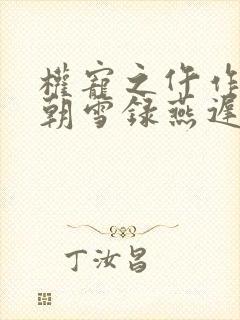 權寵之仵作
朝雪録燕遲
丁汝昌